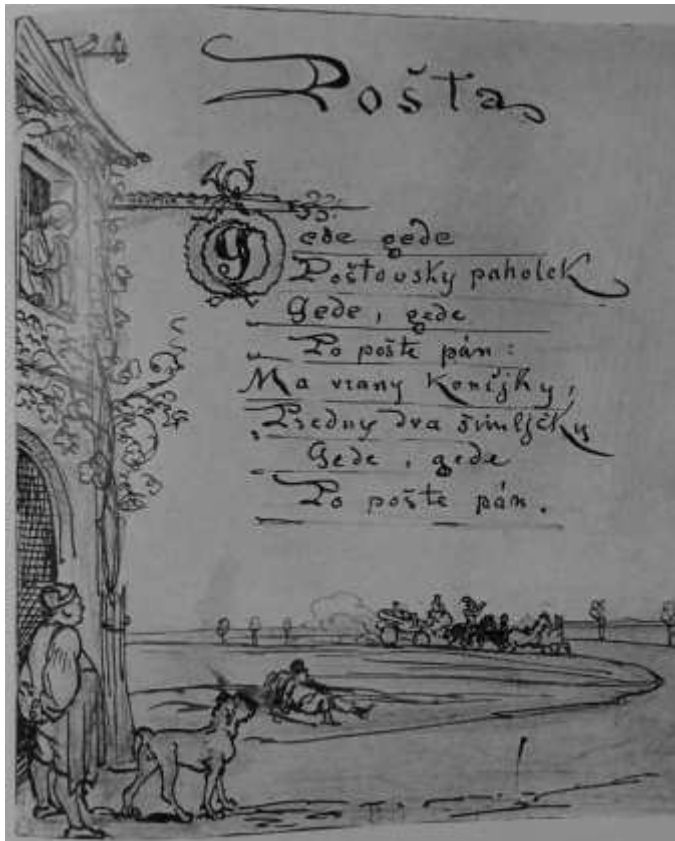 Pošta
Gede gede
Poštovsky paholek
Gede, gede
Po pošte pán:
Ma vrany konijky,
Predny dva šimljčky
Gede, gede
Po pošte pán.